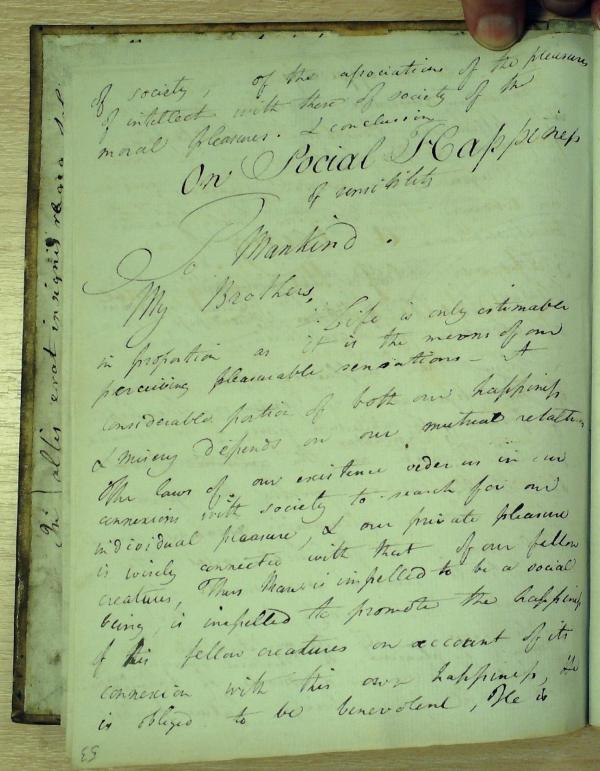 of society, of the associations of the pleasures
of intellect with those of society of the
moral pleasures. & conclusion
On Social Happiness
& sensibility
To Mankind.
My Brothers,
Life is only estimable
in proportion as it is the means of our
perceiving pleasurable sensations - A
considerable portion of both our happiness
& misery depends on our mutual relation
The laws of our existence order us in our
connexions with society to search for our
individual pleasure, & our private pleasure
is wisely connected with that of our fellow
creatures, Thus Man is impelled to be a social
being, is impelled to promote the happiness
of his fellow creatures on account of its
connexion with this own happiness, He
is obliged to be benevolent, He is
53